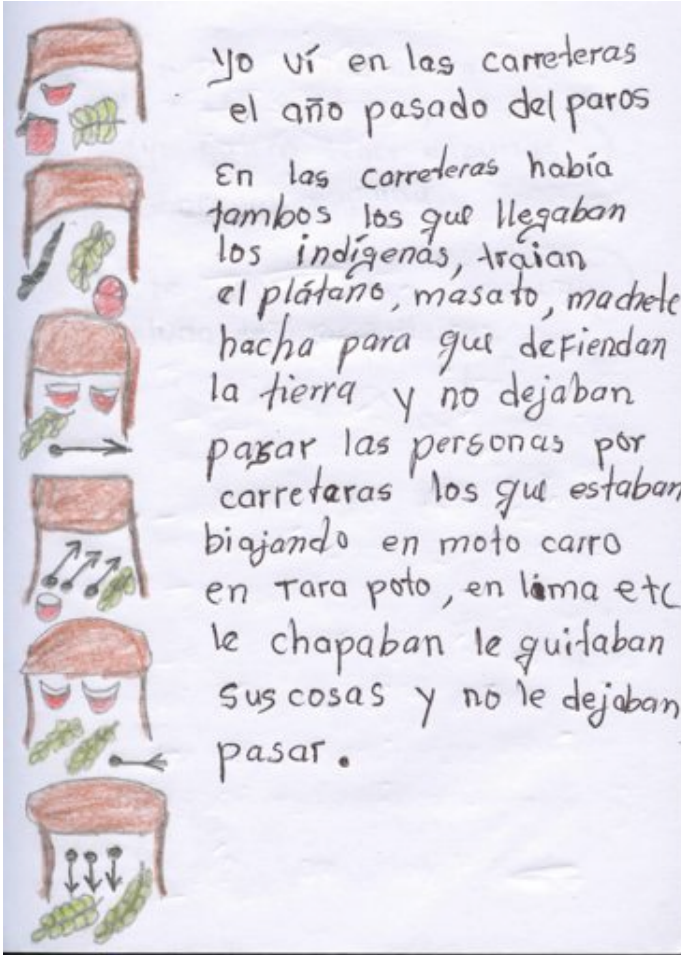 Yo ví en las carreteras
el año pasado del paros
En las carreteras había
tambos los que llegaban
los indígenas, traian
el plátano, masato, machete
hacha para que defiendan
la tierra y no dejaban
pasar las personas por
carreteras los que estaban
biajando en moto carro
en Tara poto, en lima etc
le chapaban le quitaban
sus cosas y no le dejaban
pasar.